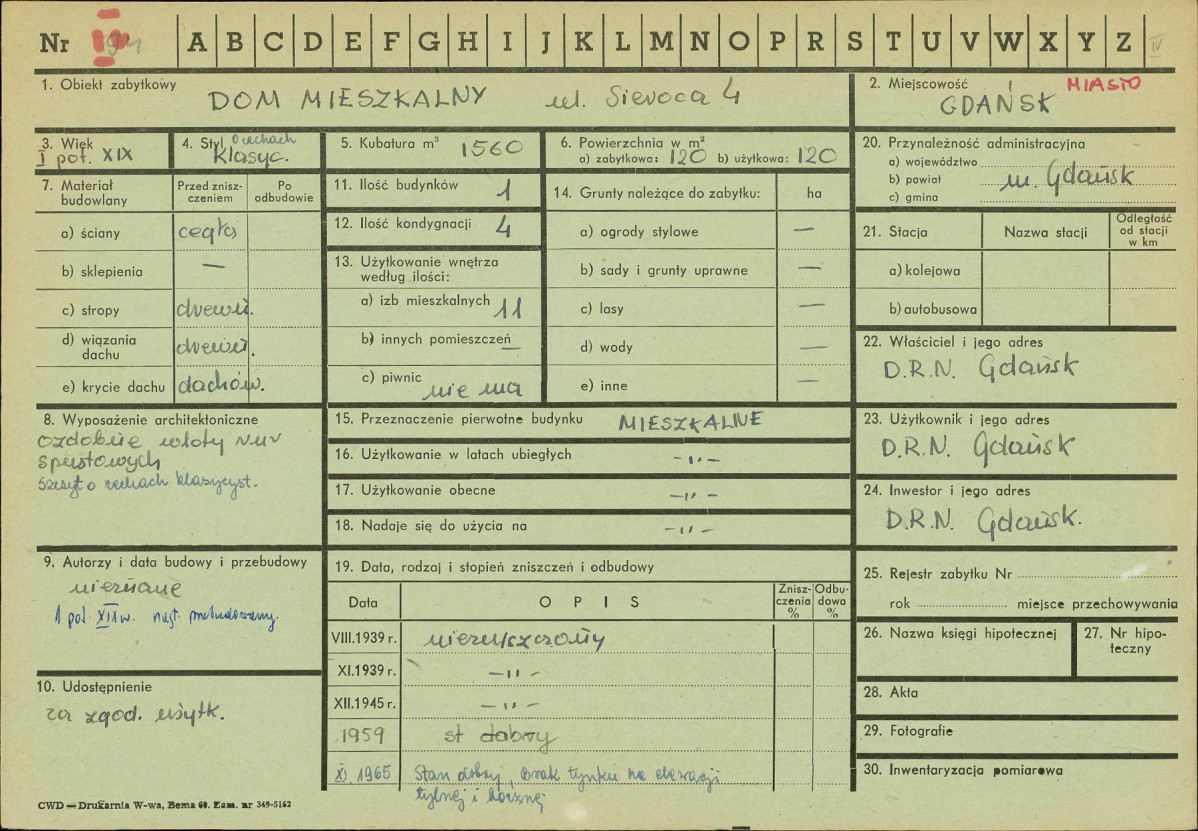 Nr A B C D E F G H I J K L M N O P R S T U V W X Y Z IV
1. Obiekt zabytkowy DOM MIESZKALNY ul. Sieroca 4
2. Miejscowość MIASTO
GDAŃSK
3. Wiek
I poł. XIX
4. Styl o cechach
klasyc.
5. Kubatura m³ 1560
6. Powierzchnia w m²
a) zabytkowa: 120 b) użytkowa: 120
7. Materiał budowlany
Przed zniszczeniem
Po odbudowie
a) ściany cegła
b) sklepienia —
c) stropy drewn.
d) wiązania dachu drewn.
e) krycie dachu dachów.
8. Wyposażenie architektoniczne
ozdobne wloty rur
spustowych
Szczyt o cechach klasycyst.
9. Autorzy i data budowy i przebudowy
nieznane
1 poł. XIX w. nast. przebudowany.
10. Udostępnienie
za zgod. użytk.
11. Ilość budynków 1
12. Ilość kondygnacji 4
13. Użytkowanie wnętrza
według ilości:
a) izb mieszkalnych 11
b) innych pomieszczeń —
c) piwnic nie ma
14. Grunty należące do zabytku: ha
a) ogrody stylowe —
b) sady i grunty uprawne —
c) lasy —
d) wody —
e) inne —
15. Przeznaczenie pierwotne budynku MIESZKALNE
16. Użytkowanie w latach ubiegłych -"-
17. Użytkowanie obecne -"-
18. Nadaje się do użycia na -"-
19. Data, rodzaj i stopień zniszczeń i odbudowy
Data O P I S Zniszczenia % Odbudowa %
VIII.1939 r. niezniszczony
XI.1939 r. -"-
XII.1945 r. -"-
1959 st dobry
XI 1965 Stan dobry, brak tynku na elewacji
tylnej i bocznej
20. Przynależność administracyjna
a) województwo
b) powiat m. Gdańsk
c) gmina
21. Stacja Nazwa stacji Odległość od stacji w km
a) kolejowa
b) autobusowa
22. Właściciel i jego adres
D.R.N. Gdańsk
23. Użytkownik i jego adres
D.R.N. Gdańsk
24. Inwestor i jego adres
D.R.N. Gdańsk.
25. Rejestr zabytku Nr
rok miejsce przechowywania
26. Nazwa księgi hipotecznej
27. Nr hipoteczny
28. Akta
29. Fotografie
30. Inwentaryzacja pomiarowa
CWD — Drukarnia W-wa, Bema 60. Zam. nr 349-5162